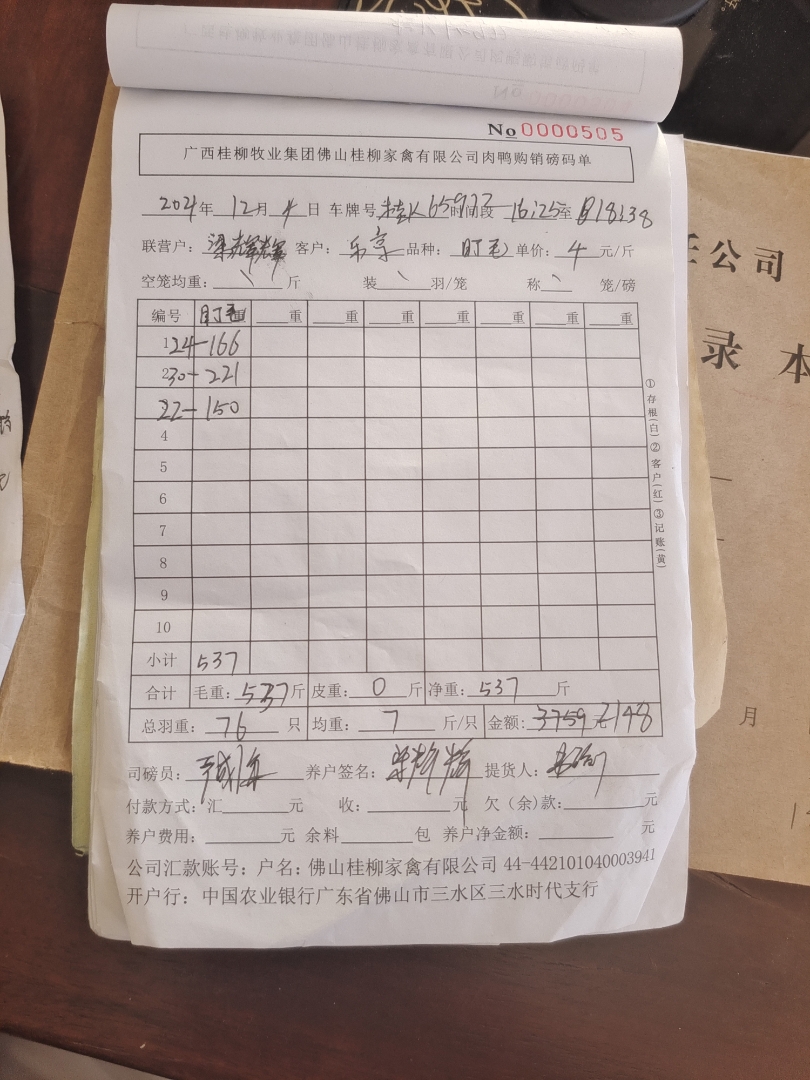 No 0000505
广西桂柳牧业集团佛山桂柳家禽有限公司肉鸭购销磅码单
2021年 12月 4日 车牌号 65977 时间段 16:25至 18:38
联营户: 梁辉辉 客户: 乐享 品种: 盯毛 单价: 4 元/斤
空笼均重: \ 斤 装 \ 羽/笼 称 \ 笼/磅
编号 盯毛重 重 重 重 重 重 重 重
1 24-166
2 30-221
3 22-150
4
5
6
7
8
9
10
小计 537
合计 毛重: 537斤 皮重: 0 斤 净重: 537 斤
总羽重: 76 只 均重: 7 斤/只 金额: 3759 元 2148
司磅员: 养户签名: 梁辉辉 提货人:
付款方式: 汇 元 收: 元 欠(余)款: 元
养户费用: 元 余料 包 养户净金额: 元
公司汇款账号: 户名: 佛山桂柳家禽有限公司 44-442101040003941
开户行: 中国农业银行广东省佛山市三水区三水时代支行
①存根(白)②客户(红)③记账(黄)
公司
录本
月